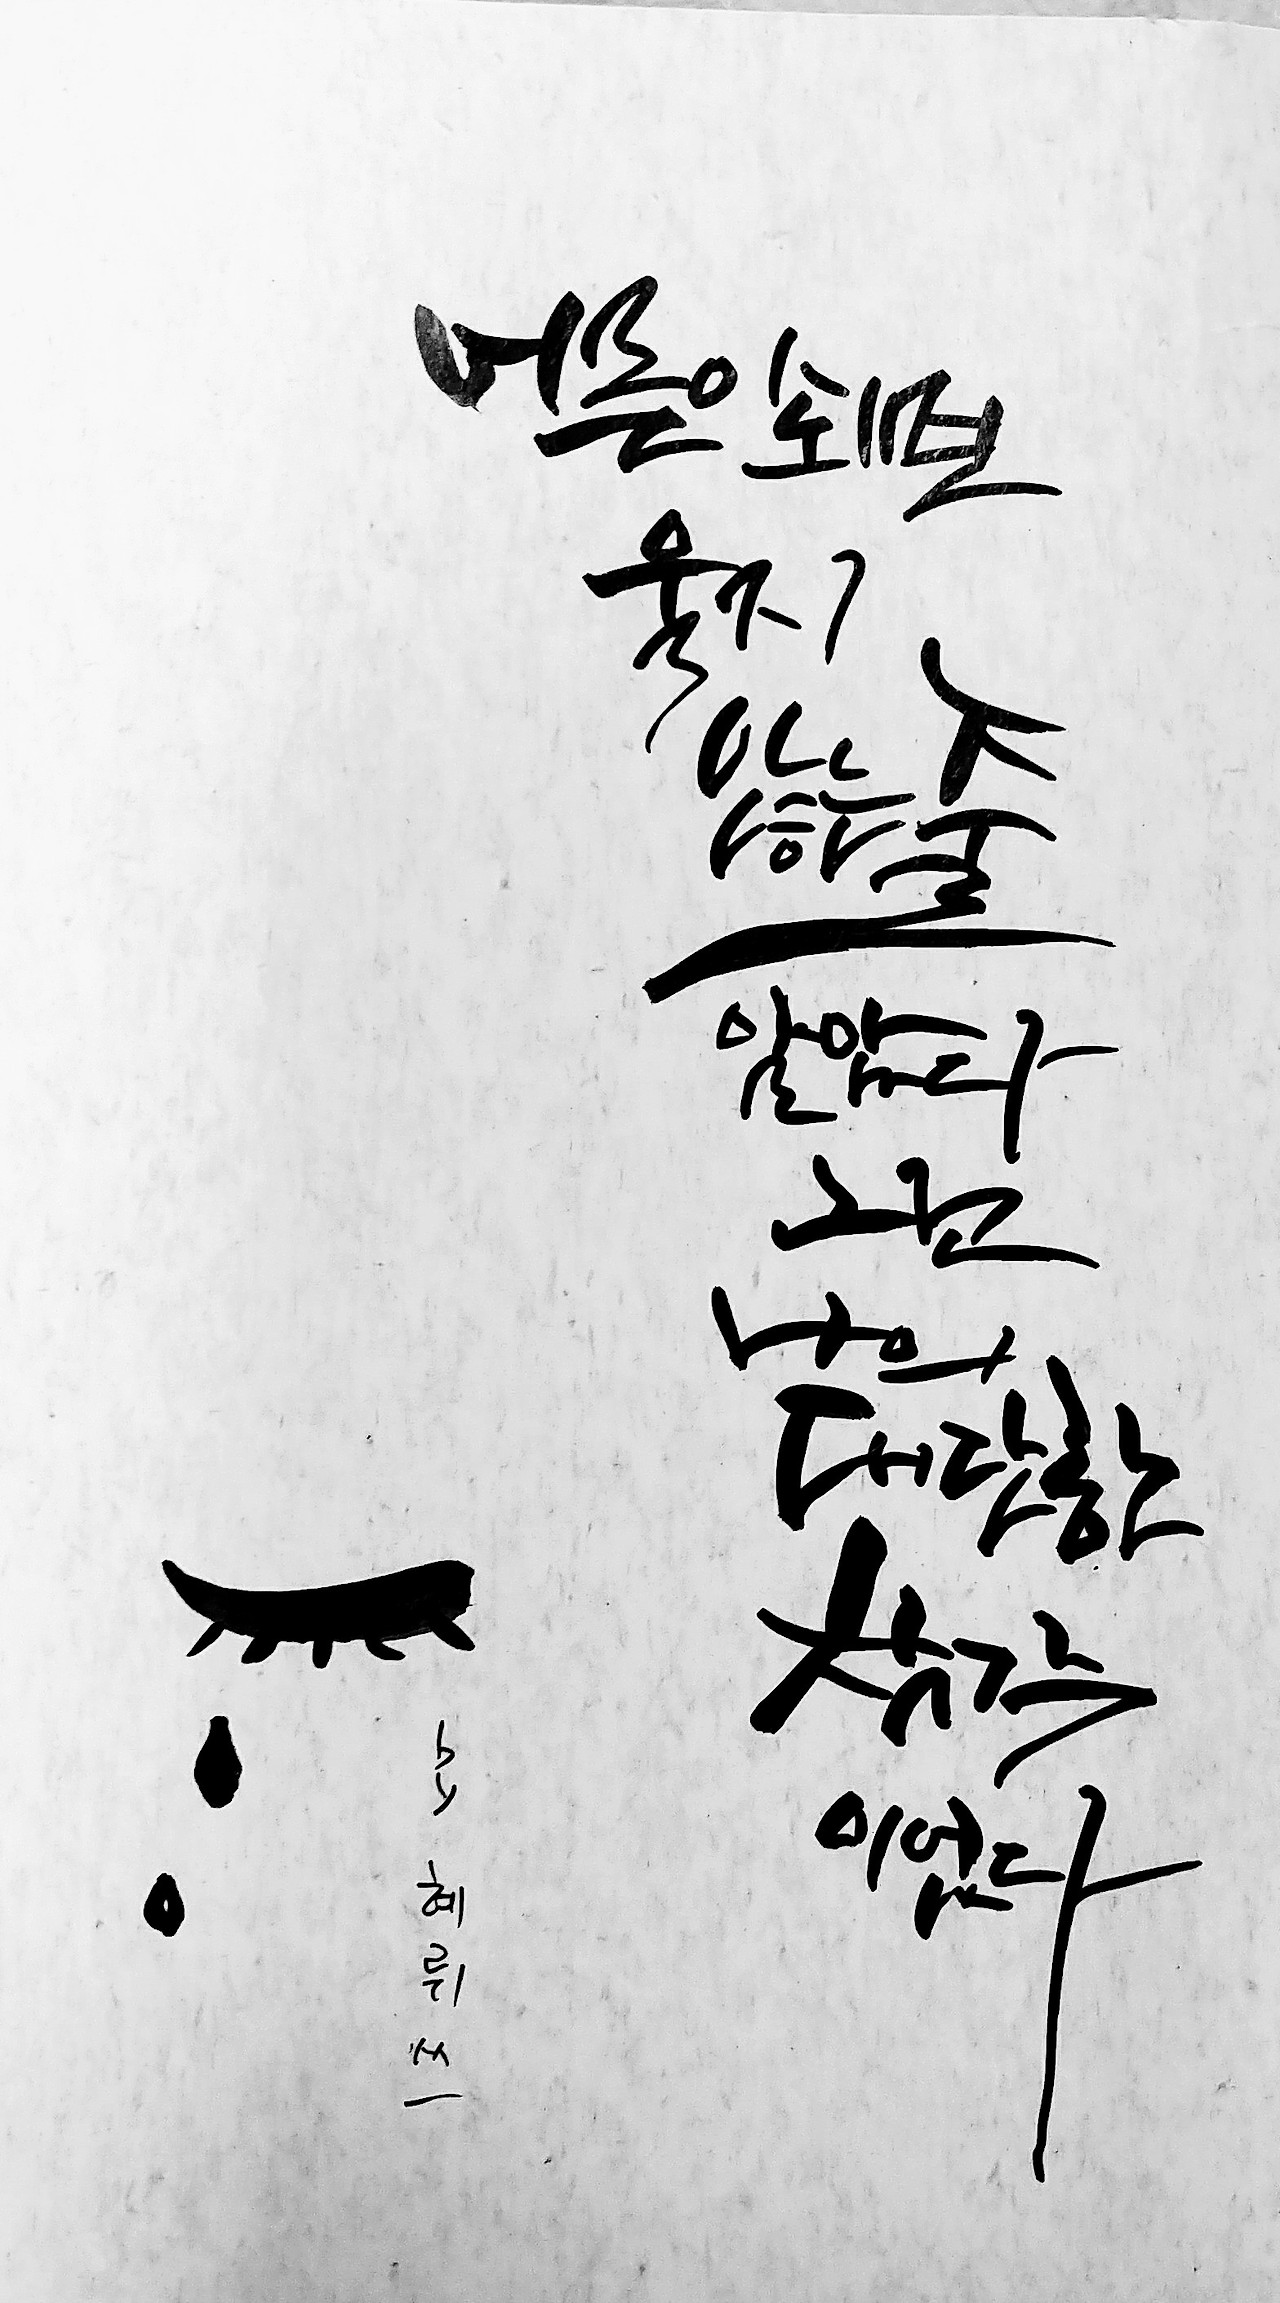 어른이 되면
울지
않는 줄
알았다
그건
나의
대단한
착각
이었다
by 혜뤼쓰